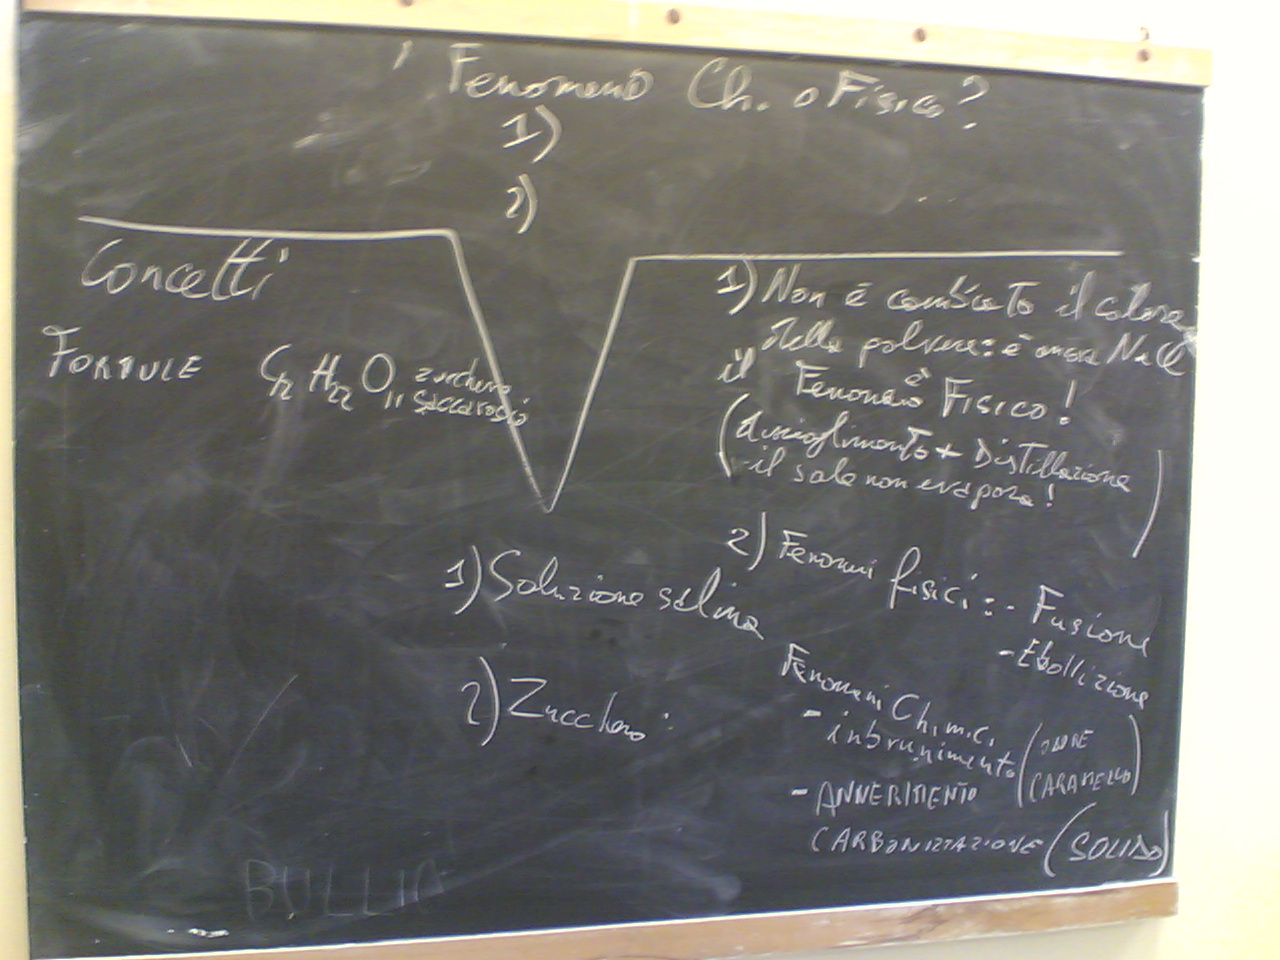 Fenomeno Ch. o Fisico?
1)
2)
Concetti
FORMULE C12 H22 O11 zucchero
saccarosio
1) Non è cambiato il colore
della polvere: è ancora NaCl
il Fenomeno è Fisico!
+ Distillazione
il sale non evapora!)
2) Fenomeni fisici: - Fusione
- Ebollizione
Fenomeni Chimici
- inbrunimento (ODORE
CARAMELLO)
- ANNERIMENTO
CARBONIZZAZIONE (SOLIDO)
1) Soluzione salina
2) Zucchero:
BULLIO